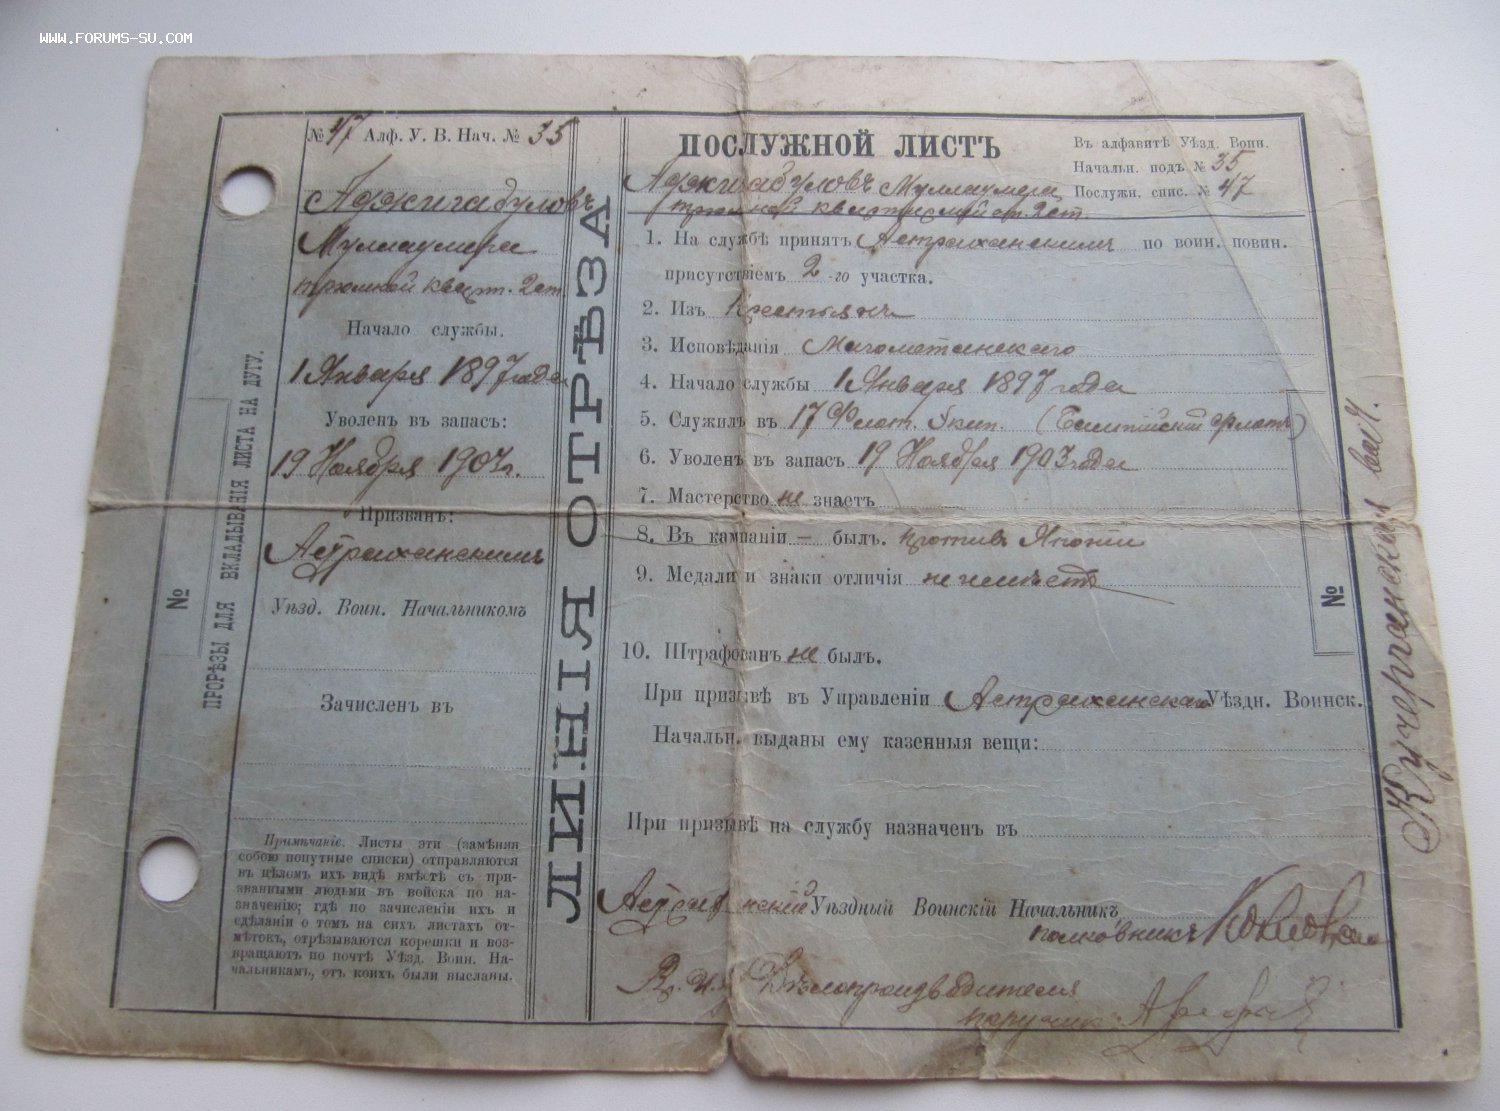 WWW.FORUMS-SU.COM
№ 47 Алф. У. В. Нач. № 35
Аджигабуловъ
Муллаумера
трюмной кварт. 2 ст.
Начало службы.
1 Января 1897 года
Уволенъ въ запасъ:
19 Ноября 1903 г.
Призванъ:
Астраханскимъ
Уѣзд. Воин. Начальникомъ
Зачисленъ въ
Примѣчаніе. Листы эти (замѣняя
собою попутные списки) отправляются
въ цѣломъ ихъ видѣ вмѣстѣ съ при-
званными людьми въ войска по на-
значенію; гдѣ по зачисленіи ихъ и
сдѣланіи о томъ на сихъ листахъ от-
мѣтокъ, отрѣзываются корешки и воз-
вращаютъ по почтѣ Уѣзд. Воин. На-
чальникамъ, отъ коихъ были высланы.
№
ПРОРѢЗЫ ДЛЯ ВКЛАДЫВАНІЯ ЛИСТА НА ДУГУ.
ЛИНІЯ ОТРѢЗА
ПОСЛУЖНОЙ ЛИСТЪ
Въ алфавитѣ Уѣзд. Воин.
Начальн. подъ № 35
Послужн. спис. № 47
Аджигабуловъ Муллаумера
трюмной квартирмейст. 2 ст.
1. На службѣ принятъ Астраханскимъ по воин. повин.
присутствіемъ 2-го участка.
2. Изъ Крестьянъ
3. Исповѣданія Магометанскаго
4. Начало службы 1 Января 1897 года
5. Служилъ въ 17 Флот. Экип. (Балтійскій флотъ)
6. Уволенъ въ запасъ 19 Ноября 1903 года
7. Мастерство не знаетъ
8. Въ кампаніи — былъ. противъ Японіи
9. Медали и знаки отличія не имѣетъ
10. Штрафованъ не былъ.
При призывѣ въ Управленіи Астраханскаго Уѣздн. Воинск.
Начальн. выданы ему казенныя вещи:
При призывѣ на службу назначенъ въ
Астраханскій Уѣздный Воинскій Начальникъ,
полковникъ
Дѣлопроизводителя
поручикъ
№
Кучергановская вол.